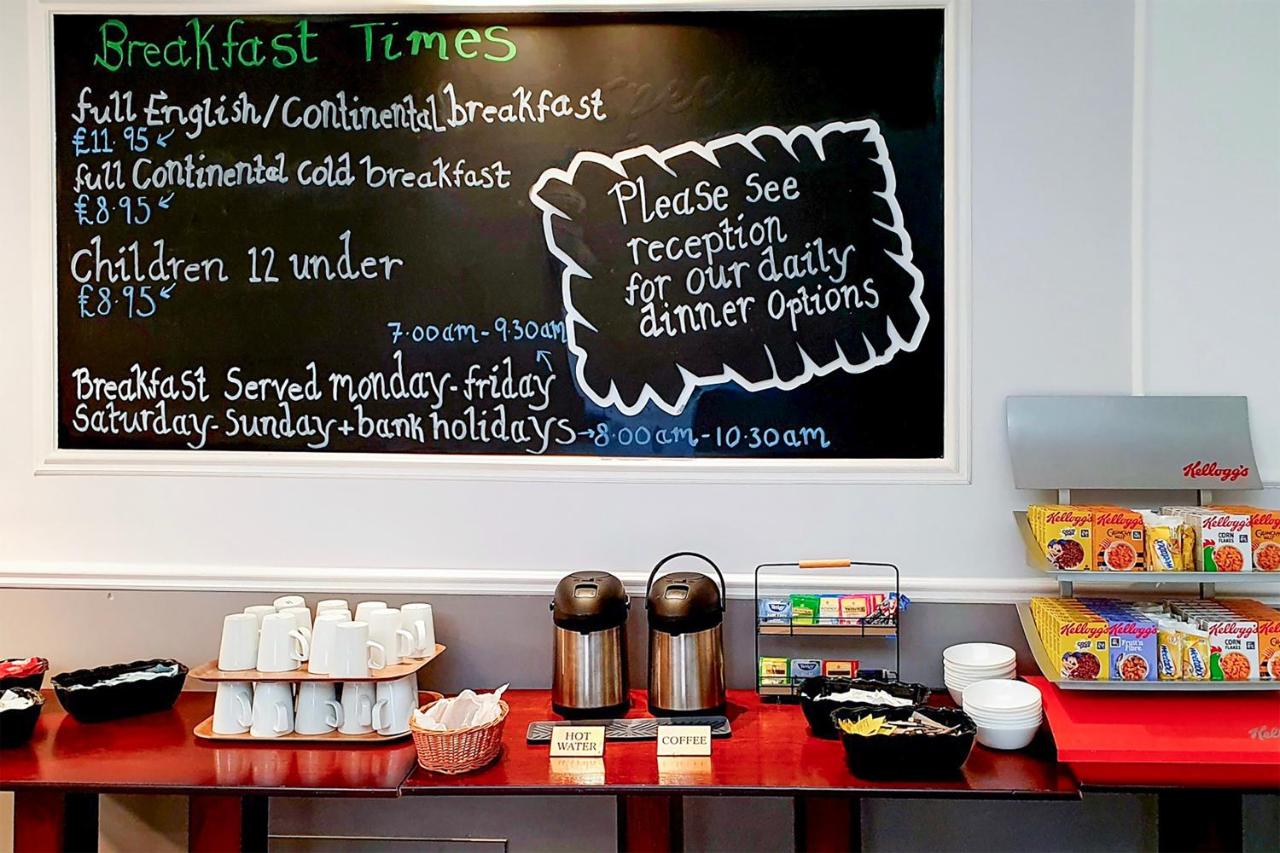 Breakfast Times
full English/Continental breakfast
£11.95
full Continental cold breakfast
£8.95
Children 12 under
£8.95
7.00am-9.30am
Breakfast Served monday-friday
Saturday-Sunday+bank holidays→8.00am-10.30am
Please See
reception
for our daily
dinner Options
Kellogg's
Kellogg's
Kellogg's
Kellogg's
CORN FLAKES
Kellogg's
Kellogg's
Kellogg's
Fruit 'n Fibre
Kellogg's
CORN FLAKES
Kellogg's
HOT
WATER
COFFEE